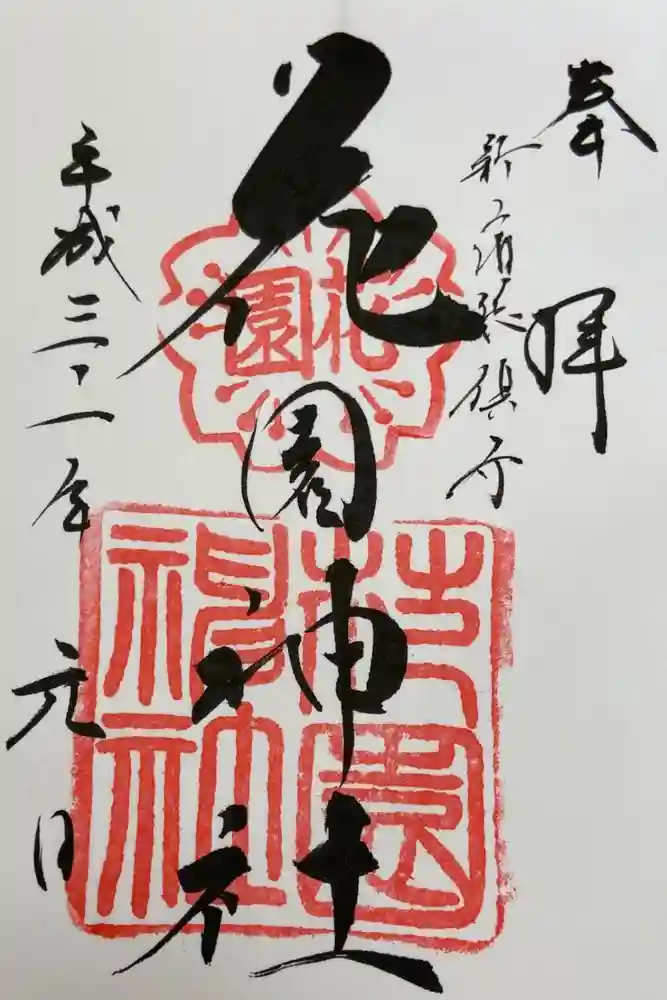 奉拝
新宿総鎮守
花園神社
平成三十一年 元日
花園
花園神社